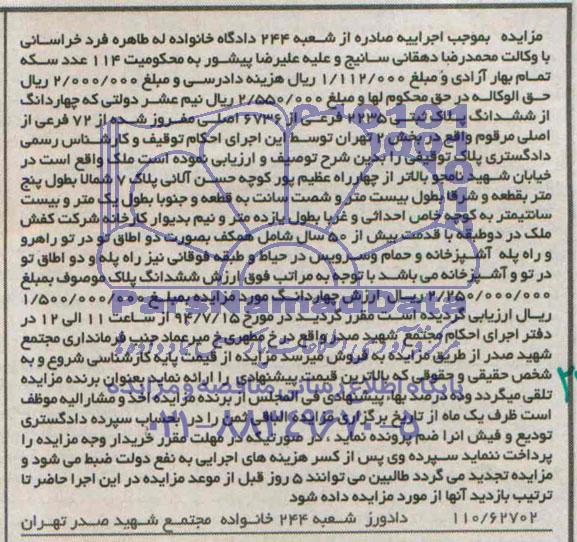 مزایده بموجب اجراییه صادره از شعبه ۲۴۴ دادگاه خانواده له طاهره فرد خراسانی
با وکالت محمدرضا دهقانی سانیج و علیه علیرضا پیشور به محکومیت ۱۱۴ عدد سکه
تمام بهار آزادی و مبلغ ۱/۱۱۲/۰۰۰ ریال هزینه دادرسی و مبلغ ۲/۰۰۰/۰۰۰ ریال
حق الوکاله در حق محکوم لها و مبلغ ۲/۵۵۰/۰۰۰ ریال نیم عشر دولتی که چهاردانگ
از ششدانگ پلاک ثبتی ۲۲۳۵ فرعی از ۶۷۳۶ اصلی مفروز شده از ۷۲ فرعی از
اصلی مرقوم واقع در بخش ۲ تهران توسط این اجرای احکام توقیف و کارشناس رسمی
دادگستری پلاک توقیفی را بدین شرح توصیف و ارزیابی نموده است ملک واقع است در
خیابان شهید نامجو بالاتر از چهارراه عظیم پور کوچه حسن آلانی پلاک ۷ شمالا بطول پنج
متر بقطعه و شرقا بطول بیست متر و شصت سانت به قطعه و جنوبا بطول یک متر و بیست
سانتیمتر به کوچه خاص احداثی و غربا بطول یازده متر و نیم بدیوار کارخانه شرکت کفش
ملک در دوطبقه با قدمت بیش از ۵۰ سال شامل همکف بصورت دو اطاق تو در تو راهرو
و راه پله آشپزخانه و حمام وسرویس در حیاط و طبقه فوقانی نیز راه پله و دو اطاق تو
در تو و آشپزخانه می باشد با توجه به مراتب فوق ارزش ششدانگ پلاک موصوف بمبلغ
۲/۲۵۰/۰۰۰/۰۰۰ ریال ارزش چهاردانگ مورد مزایده بمبلغ ۱/۵۰۰/۰۰۰/۰۰۰
ریال ارزیابی گردیده است مقرر گردید در مورخ ۹۲/۷/۱۵ از ساعت ۱۱ الی ۱۲ در
دفتر اجرای احکام مجتمع شهید صدر واقع در خ مطهری خ میرعماد جنب فرمانداری مجتمع
شهید صدر از طریق مزایده به فروش میرسد مزایده از قیمت پایه کارشناسی شروع و به
شخص حقیقی و حقوقی که بالاترین قیمت پیشنهادی را ارائه نماید بعنوان برنده مزایده
تلقی میگردد وده درصد بهاء پیشنهادی فی المجلس از برنده مزایده اخذ و مشارالیه موظف
است ظرف یک ماه از تاریخ برگزاری مزایده الباقی ثمن را در حساب سپرده دادگستری
تودیع و فیش انرا ضم پرونده نماید ، در صورتیکه در مهلت مقرر خریدار وجه مزایده را
پرداخت ننماید سپرده وی پس از کسر هزینه های اجرایی به نفع دولت ضبط می شود و
مزایده تجدید می گردد طالبین می توانند ۵ روز قبل از موعد مزایده در این اجرا حاضر تا
ترتیب بازدید آنها از مورد مزایده داده شود
۱۱۰/۶۲۷۰۲ دادورز شعبه ۲۴۴ خانواده مجتمع شهید صدر تهران
ParsNamadData
پایگاه اطلاع رسانی مناقصه و مزایده
۰۲۱-۸۸۳۴۹۶۷۰-۵